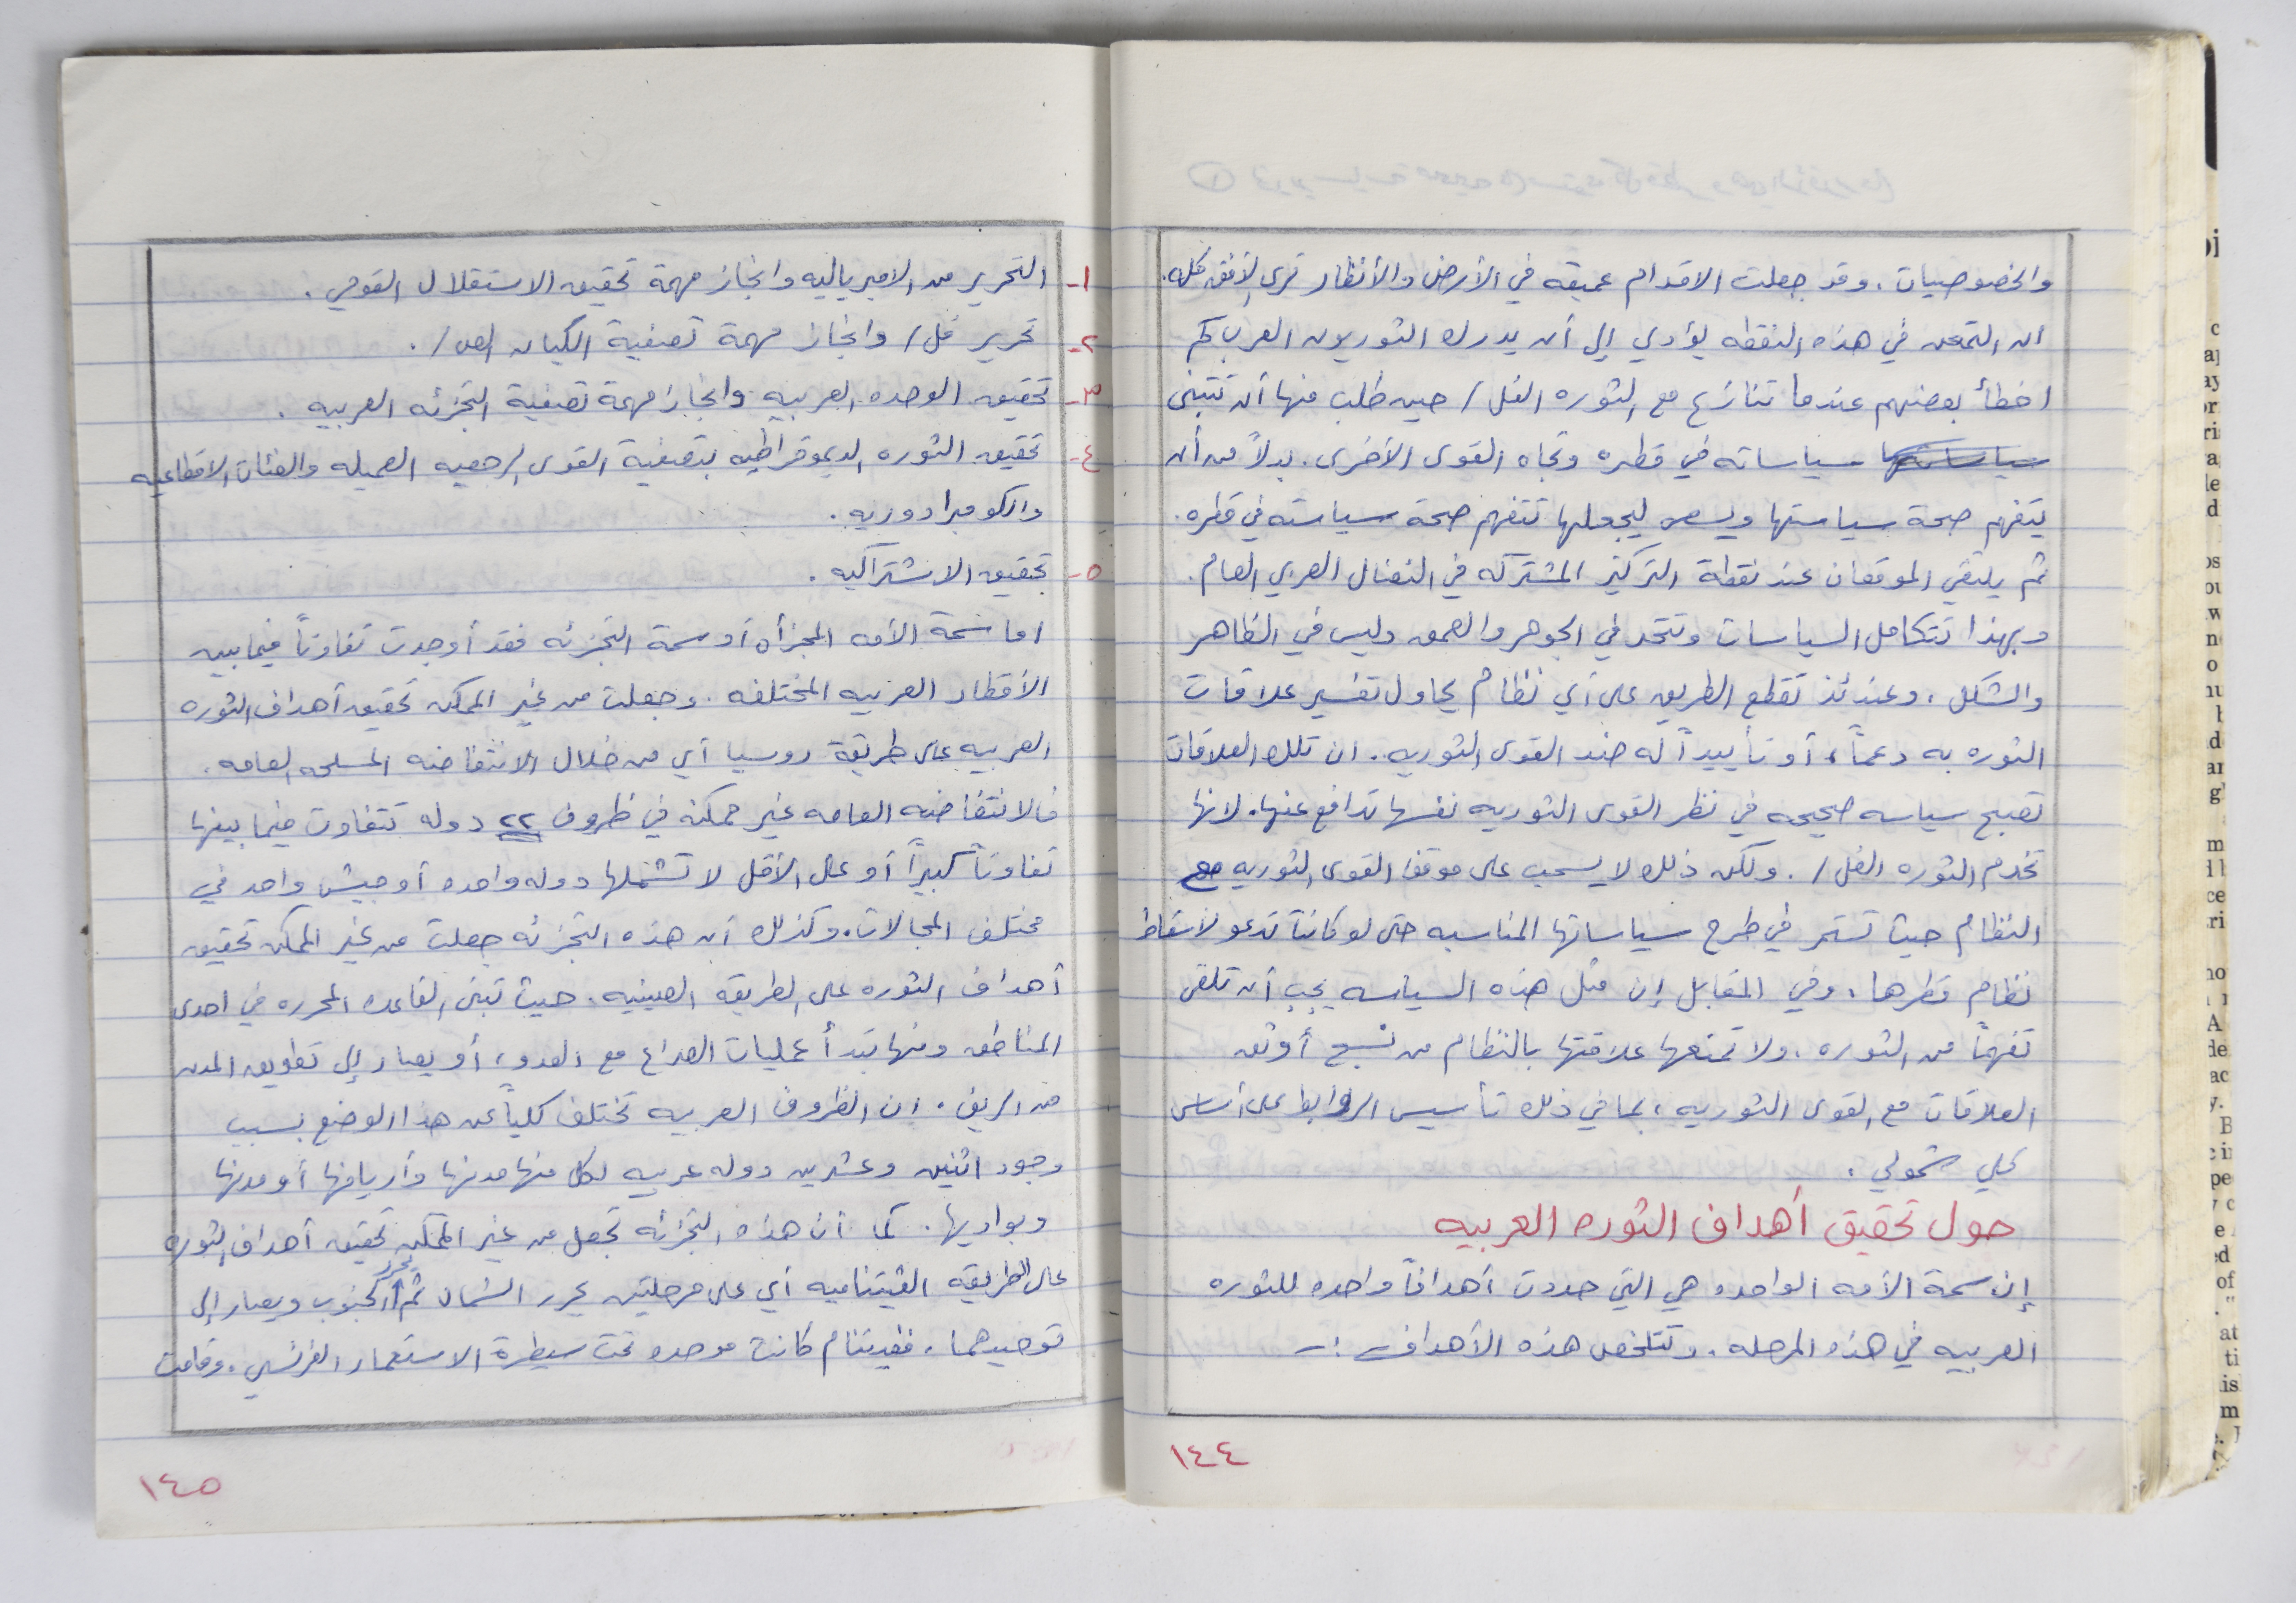 والخصوصيات. وقد جعلت الاقدام عميقه في الأرض والأنظار ترى الأفق كله.
ان التمعن في هذه النقطه يؤدي إلى أن يدرك الثوريون العرب كم
اخطأ بعضهم عندما تنازع مع الثوره الفل / حين طلب منها أن تتبنى
سياساته في قطره وتجاه القوى الأخرى. بدلاً من أن
يتفهم صحة سياستها ويسعى ليجعلها تتفهم صحة سياسته في قطره.
ثم يلتقي الموقفان عند نقطة التركيز المشتركه في النضال العربي العام.
وبهذا تتكامل السياسات وتتحد في الجوهر والعمق وليس في الظاهر
والشكل، وعندئذ تقطع الطريق على أي نظام يحاول تفسير علاقات
الثوره به دعماً، أو تأييداً له ضد القوى الثوريه. ان تلك العلاقات
تصبح سياسه صحيحه في نظر القوى الثوريه نفسها تدافع عنها. لانها
تخدم الثوره الفل /. ولكن ذلك لا يسحب على موقف القوى الثوريه مع
النظام حيث تستمر في طرح سياساتها المناسبه حتى لو كانت تدعو لاسقاط
نظام قطرها. وفي المقابل إن مثل هذه السياسه يجب أن تلقى
تفهماً من الثوره. ولا تمنعها علاقتها بالنظام من نسج أوثق
العلاقات مع القوى الثوريه، بما في ذلك تأسيس الروابط على أساس
كلي شمولي.
حول تحقيق أهداف الثوره العربيه
إن سمة الأمه الواحده هي التي حددت أهدافاً واحده للثوره
العربيه في هذه المرحله. وتتلخص هذه الأهداف :-
١٤٤
١- التحرير من الامبرياليه وانجاز مهمة تحقيق الاستقلال القومي.
٢- تحرير فل / وانجاز مهمة تصفية الكيان الص /.
٣- تحقيق الوحده العربيه وانجاز مهمة تصفية التجزئه العربيه.
٤- تحقيق الثوره الديموقراطيه بتصفية القوى الرجعيه العميله والفئات الاقطاعيه
والكومبرادوريه.
٥- تحقيق الاشتراكيه.
اما سمة الأمه المجزأه أو سمة التجزئه فقد أوجدت تفاوتاً فيما بين
الأقطار العربيه المختلفه. وجعلت من غير الممكن تحقيق أهداف الثوره
العربيه على طريقة روسيا أي من خلال الانتفاضه المسلحه العامه.
فالانتفاضه العامه غير ممكنه في ظروف ٢٢ دوله تتفاوت فيما بينها
تفاوتاً كبيراً أو على الأقل لا تشملها دوله واحده أو جيش واحد في
مختلف المجالات. وكذلك أن هذه التجزئه جعلت من غير الممكن تحقيق
أهداف الثوره على الطريقه الصينيه. حيث تبنى القاعده المحرره في احدى
المناطق ومنها تبدأ عمليات الصراع مع العدو، أو يصار إلى تطويق المدن
من الريف. ان الظروف العربيه تختلف كلياً عن هذا الوضع بسبب
وجود اثنين وعشرين دوله عربيه لكل منها مدنها وأريافها أو مدنها
وبواديها. كما أن هذه التجزئه تجعل من غير الممكن تحقيق أهداف الثوره
على الطريقه الفيتناميه أي على مرحلتين يحرر الشمال ثم يحرر الجنوب ويصار إلى
توحيدهما. ففيتنام كانت موحده تحت سيطرة الاستعمار الفرنسي. وقامت
١٤٥